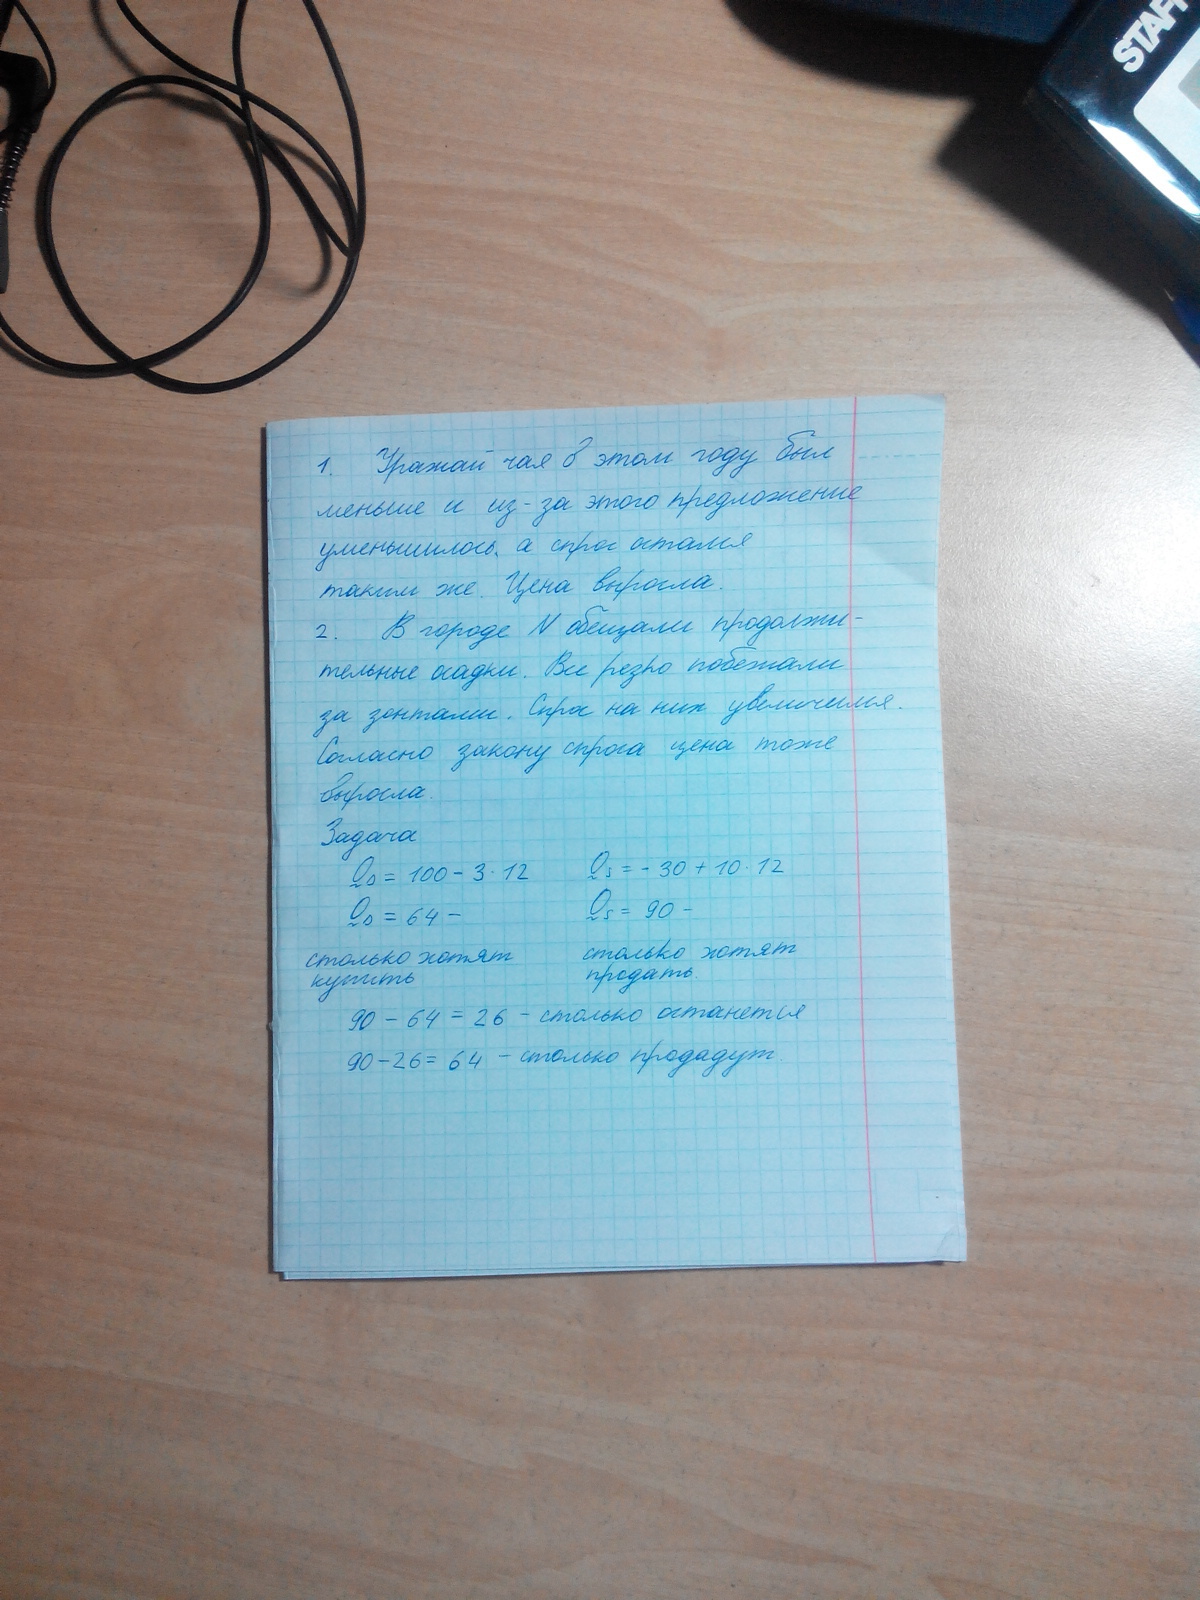 STAFF
1. Уражай чая в этом году был
меньше и из-за этого предложение
уменьшилось, а спрос остался
таким же. Цена выросла.
2. В городе N обещали продолжи-
тельные осадки. Все резко побежали
за зонтами. Спрос на них увеличился.
Согласно закону спроса цена тоже
выросла.
Задача
QD = 100 - 3·12 QS = -30 + 10·12
QD = 64 - QS = 90 -
столько хотят столько хотят
купить продать.
90 - 64 = 26 - столько останется
90 - 26 = 64 - столько продадут.